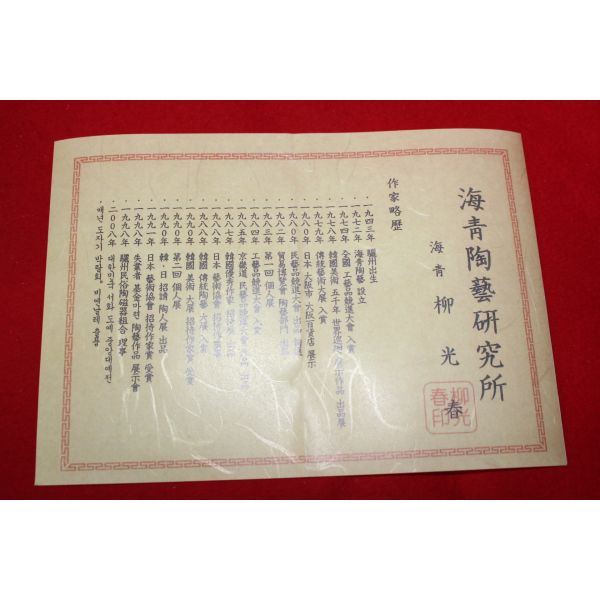 海青陶藝研究所
海青 柳光春
柳光春印
作家略歷
· 一九四三年 驪州出生
· 一九七二年 海青陶藝 設立
· 一九七四年 全國 工藝品競進大會 入賞
· 一九七九年 韓國美術 五千年 世界巡廻 展示作品 出品展
· 一九七九年 傳統藝術大展 入賞
· 一九八〇年 日本 大阪市 大阪百貨店 展示
· 一九八〇年 民藝品競進大會 出品
· 一九八二年 貿易博覽會 陶藝部門 出品
· 一九八三年 第一回 個人展
· 一九八四年 工藝品競進大會 入賞
· 一九八五年 京畿道 民藝品 競進大會 出品
· 一九八七年 韓國優秀作家 招待展 出品
· 一九八八年 日本 藝術協會 招待
· 一九八八年 韓國 傳統陶藝 大展 入賞
· 一九九〇年 韓國 美術 大展 招待作家賞 受賞
· 一九九〇年 第二回 個人展
· 一九九〇年 韓·日 招請 陶人展 出品
· 一九九一年 日本 藝術協會 招待作家賞 受賞
· 一九九八年 失業者 基金마련 陶藝作品 展示會
· 一九九八年 驪州民俗陶磁器組合 理事
· 二〇〇八年 대한민국 서화 도예 중앙대예전
· 매년 도자기 박람회, 비엔날레 출품